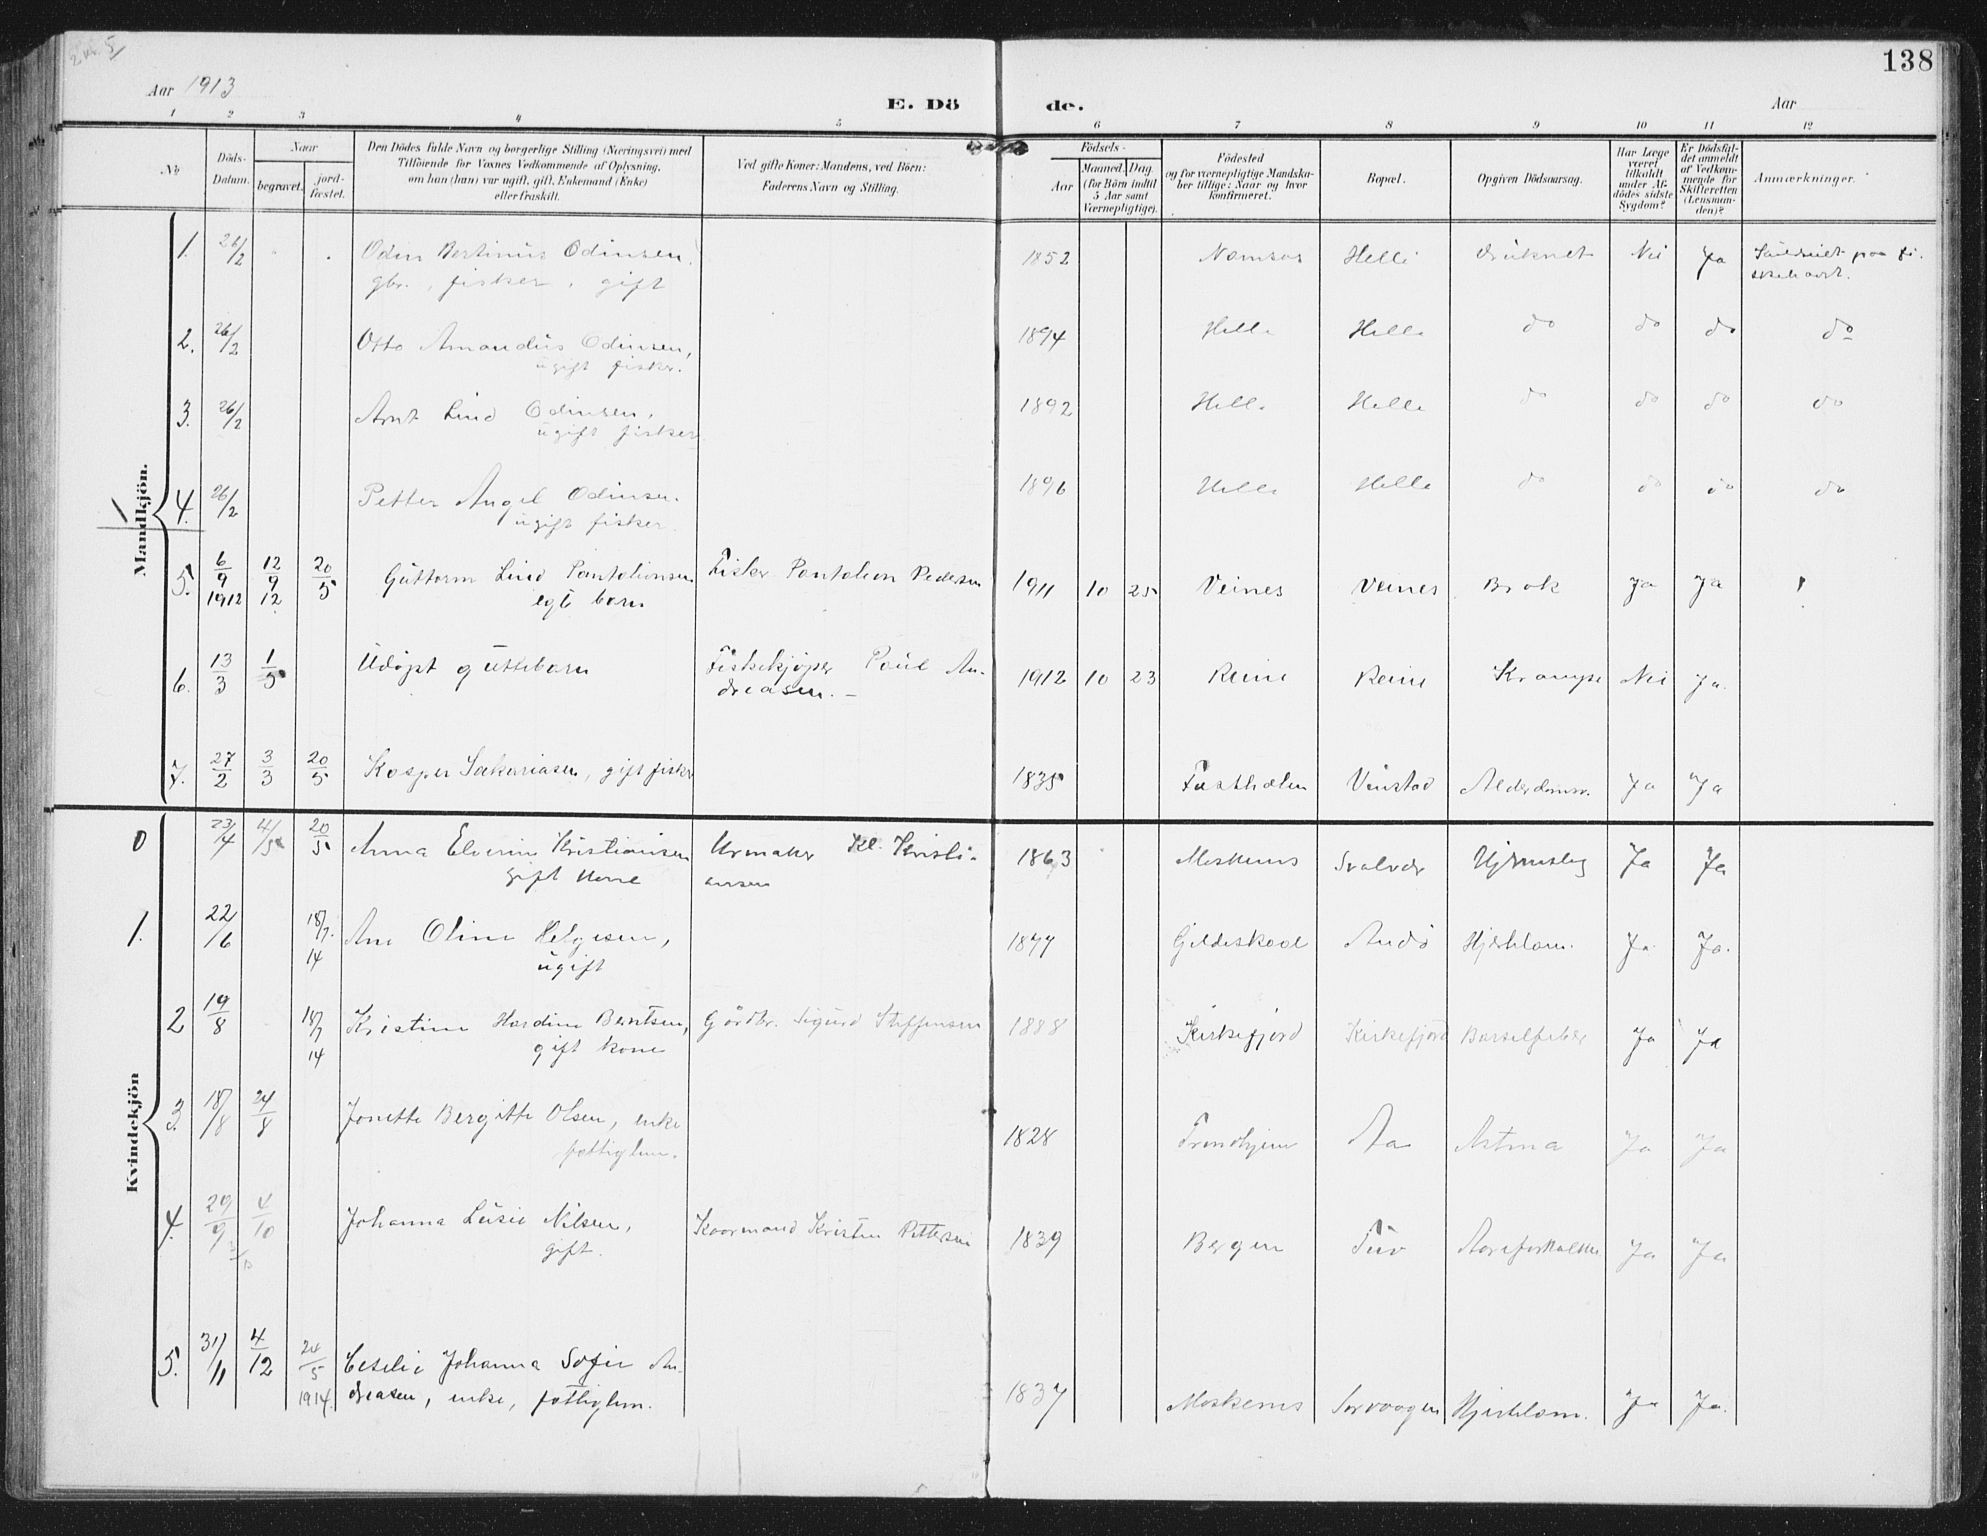 2 kr. 5
138
Aar 1913
E. Dö de.
Aar
1 2 3 4 5 6 7 8 9 10 11 12
No. Döds-Datum. Naar begravet. jord-fæstet.
Den Dödes fulde Navn og borgerlige Stilling (Næringsvei) med
Tilföiende for Voxnes Vedkommende af Oplysning,
om han (hun) var ugift, gift, Enkemand (Enke)
eller fraskilt.
Ved gifte Koner: Mandens, ved Börn:
Faderens Navn og Stilling.
Födsels-
Aar Maaned. Dag.
(for Börn indtil
5 Aar samt
Værnepligtige).
Födested
og for værnepligtige Mandska-
ber tillige: Naar og hvor
konfirmeret.
Bopæl.
Opgiven Dödsaarsag.
Har Læge
været
tilkaldt
under Af-
dödes sidste
Sygdom?
Er Dödsfal-
det anmeldt
af Vedkom-
mende for
Skifteretten
(Lensman-
den)?
Anmærkninger.
Mandkjön.
1. 26/2 Odin Bertinus Odinsen, 1852 Namsos Helle Druknet Nei Ja paa fi-
gbr., fisker, gift skehavt.
2. 26/2 Otto Amandus Odinsen, 1894 Helle Helle do do do do
ugift fisker.
3. 26/2 Arnt Lind Odinsen, 1892 Helle Helle do do do do
ugift fisker
4. 26/2 Petter Angel Odinsen. 1896 Helle Helle do do do do
ugift fisker.
5. 6/9 1912 12/9 12 20/5 Guttorm Lind Pantalionsen Fisker Pantalion Pedersen 1911 10 25 Veines Veines Brok Ja Ja
egte barn
6. 13/3 1/5 Udøpt guttebarn Fiskekjøper Paul An- 1912 10 23 Reine Reine Krampe Nei Ja.
dreasen.
7. 27/2 3/3 20/5 Kasper Sakariasen, gift fisker 1835 Festhælen Vinstad Alderdomsv. Ja Ja
Kvindekjön
0 23/4 4/5 20/5 Anna Elverine Kristiansen Urmaker Kl. Kristi- 1863 Moskenes Svolvær Hjerneslag Ja Ja
gift kone ansen
1. 22/6 18/7 14 Ane Oline Helgesen, 1877 Gildeskaal Andö Hjerklam. Ja Ja.
ugift
2 19/8 18/7 14 Kristine Hardine Berntsen, Gårdbr. Sigurd Steffensen 1888 Kirkefjord Kirkefjord Barselfeber Ja Ja
gift kone
3. 18/8 24/8 Jonette Bergitte Olsen, enke 1828 Trondhjem Aa Astma Ja Ja
fattiglem.
4. 29/9 4/10 Johanna Lusie Nilsen, Kaarmand Kristen Pettersen 1839 Bergen Tuv Aareforkalken Ja Ja
gift.
5. 31/11 4/12 24/5 1914 Ceselie Johanna Sofie An- 1837 Moskenes Sørvaagen Hjerteklam. Ja Ja.
dreasen, enke, fattiglem.